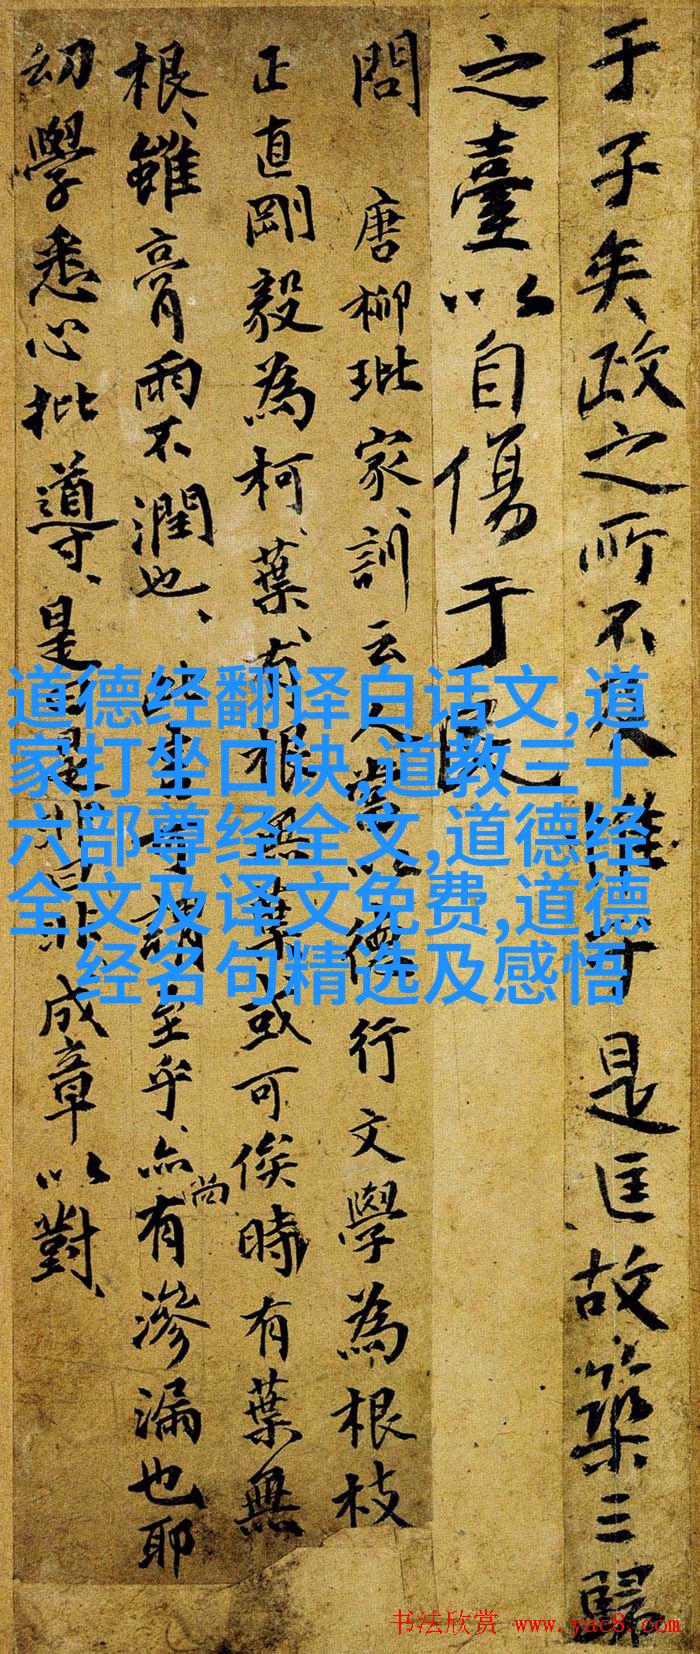 于子矣政之所不及是匡故築三歸
之臺以自傷于民
問 唐柳玭家訓云人當以德行文學為根枝
正直剛毅為柯葉有根無葉或可俟時有葉無
根雖膏雨不潤也謂至乎亦尚有滲漏也耶
幼學悉心批導是是非非成章以對
道德经翻译白话文,道
家打坐口诀,道教三十
六部尊经全文,道德经
全文及译文免费,道德
经名句精选及感悟
书法欣赏 www.yac8.com